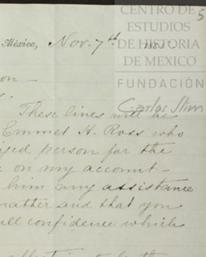 CENTRO DE
ESTUDIOS
DE HISTORIA
DE MEXICO
FUNDACIÓN
Carlos Slim
5
México, Nov. 7th
on —
These lines will be
Emmet H. Ross who
person for the
on my account —
him any assistance
matter and that you
all confidence which